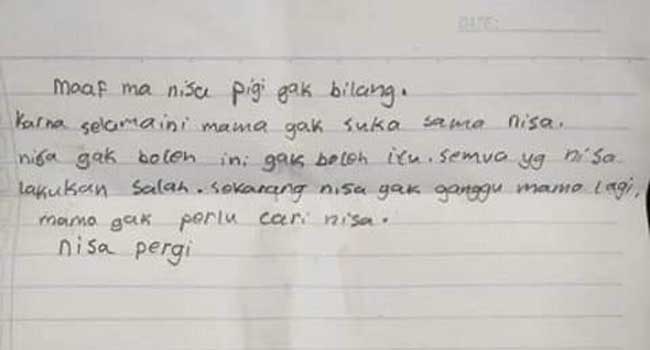 DATE:
maaf ma nisa pigi gak bilang.
karna selamaini mama gak suka sama nisa.
nisa gak boleh ini gak boleh itu. semua yg nisa
lakukan salah. sekarang nisa gak ganggu mama lagi,
mama gak perlu cari nisa.
nisa pergi